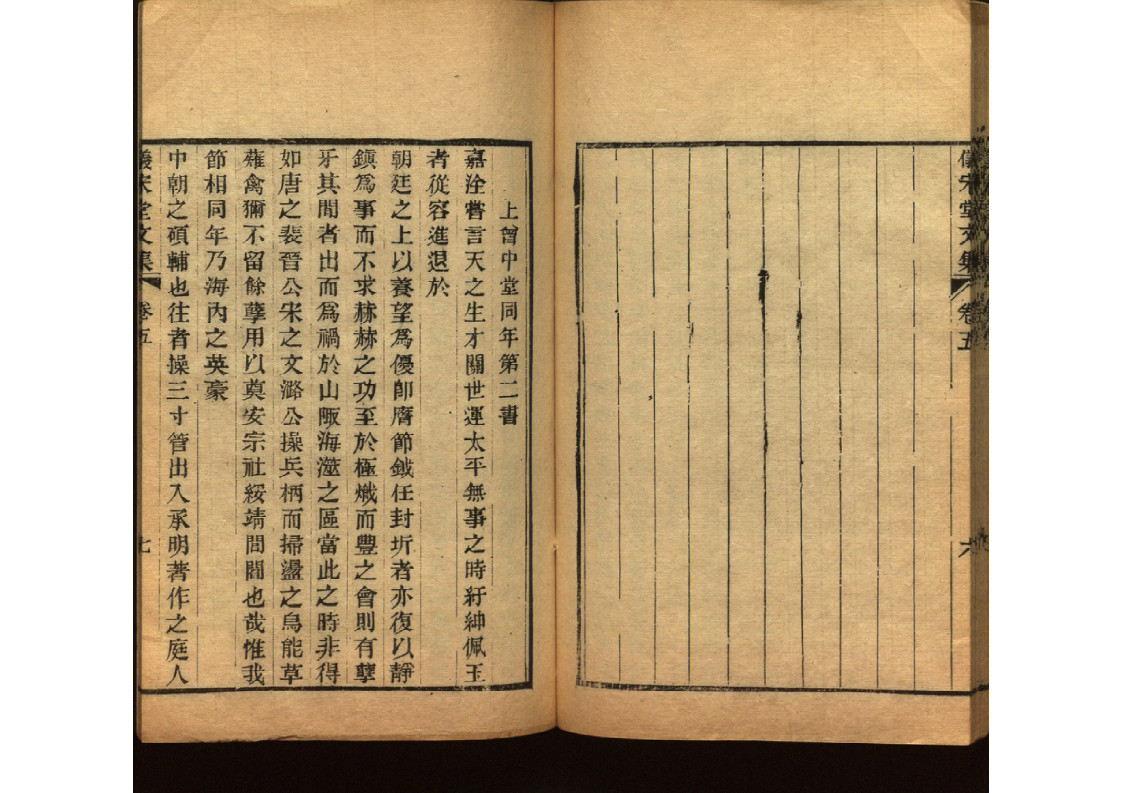 儀宋堂文集
卷五
六
上曾中堂同年第二書
嘉洤嘗言天之生才關世運太平無事之時紆紳佩玉
者從容進退於
朝廷之上以養望爲優卽膺節鉞任封圻者亦復以靜
鎭爲事而不求赫赫之功至於極熾而豐之會則有孽
牙其閒者出而爲禍於山陬海澨之區當此之時非得
如唐之裴晉公宋之文潞公操兵柄而掃盪之烏能草
薙禽獮不留餘孽用以奠安宗社綏靖閭閻也哉惟我
節相同年乃海內之英豪
中朝之碩輔也往者操三寸管出入承明著作之庭人
儀宋堂文集
卷五
七